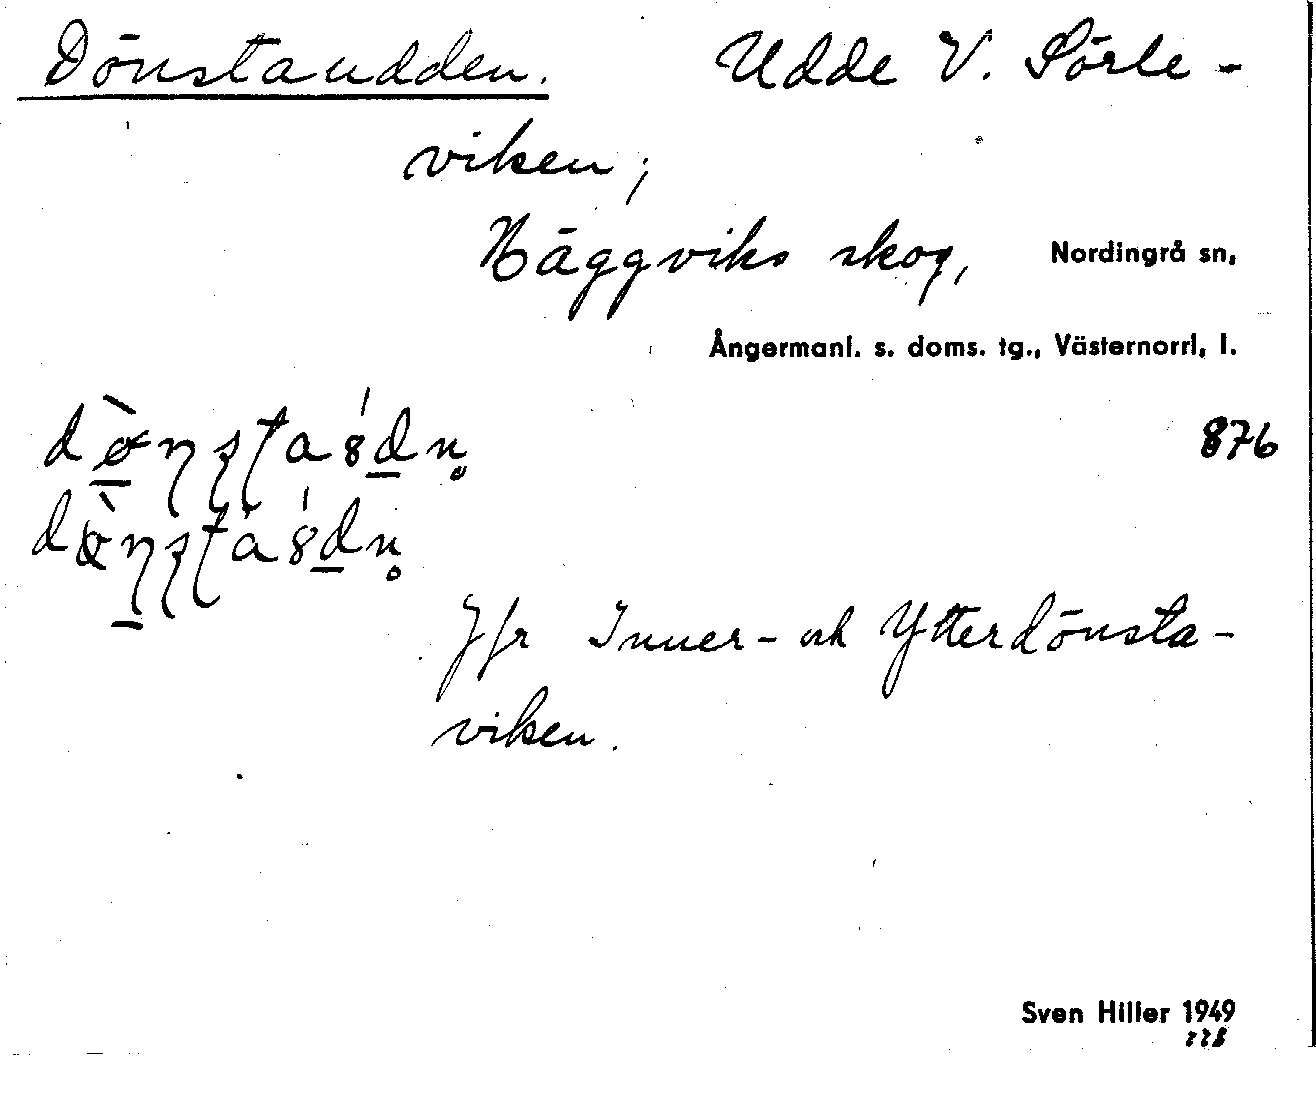 Dönstaudden. Udde V. Sörle-
viken;
Häggviks skog, Nordingrå sn,
Ångermanl. s. doms. tg., Västernorrl, l.
876
Jfr Inner- och Ytterdönsta-
viken.
Sven Hiller 1949